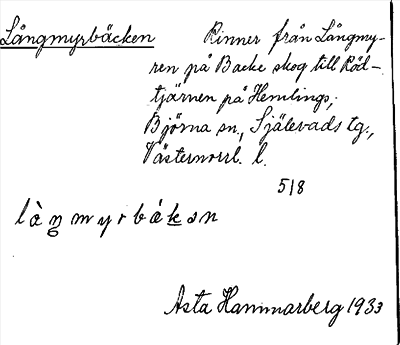 Långmyrbäcken Rinner från Långmy-
ren på Backe skog till Röd-
tjärnen på Hemlings,
Björna sn., Själevads tg.,
Västernorrl. l.
518
làŋmyrbákən
Asta Hammarberg 1933